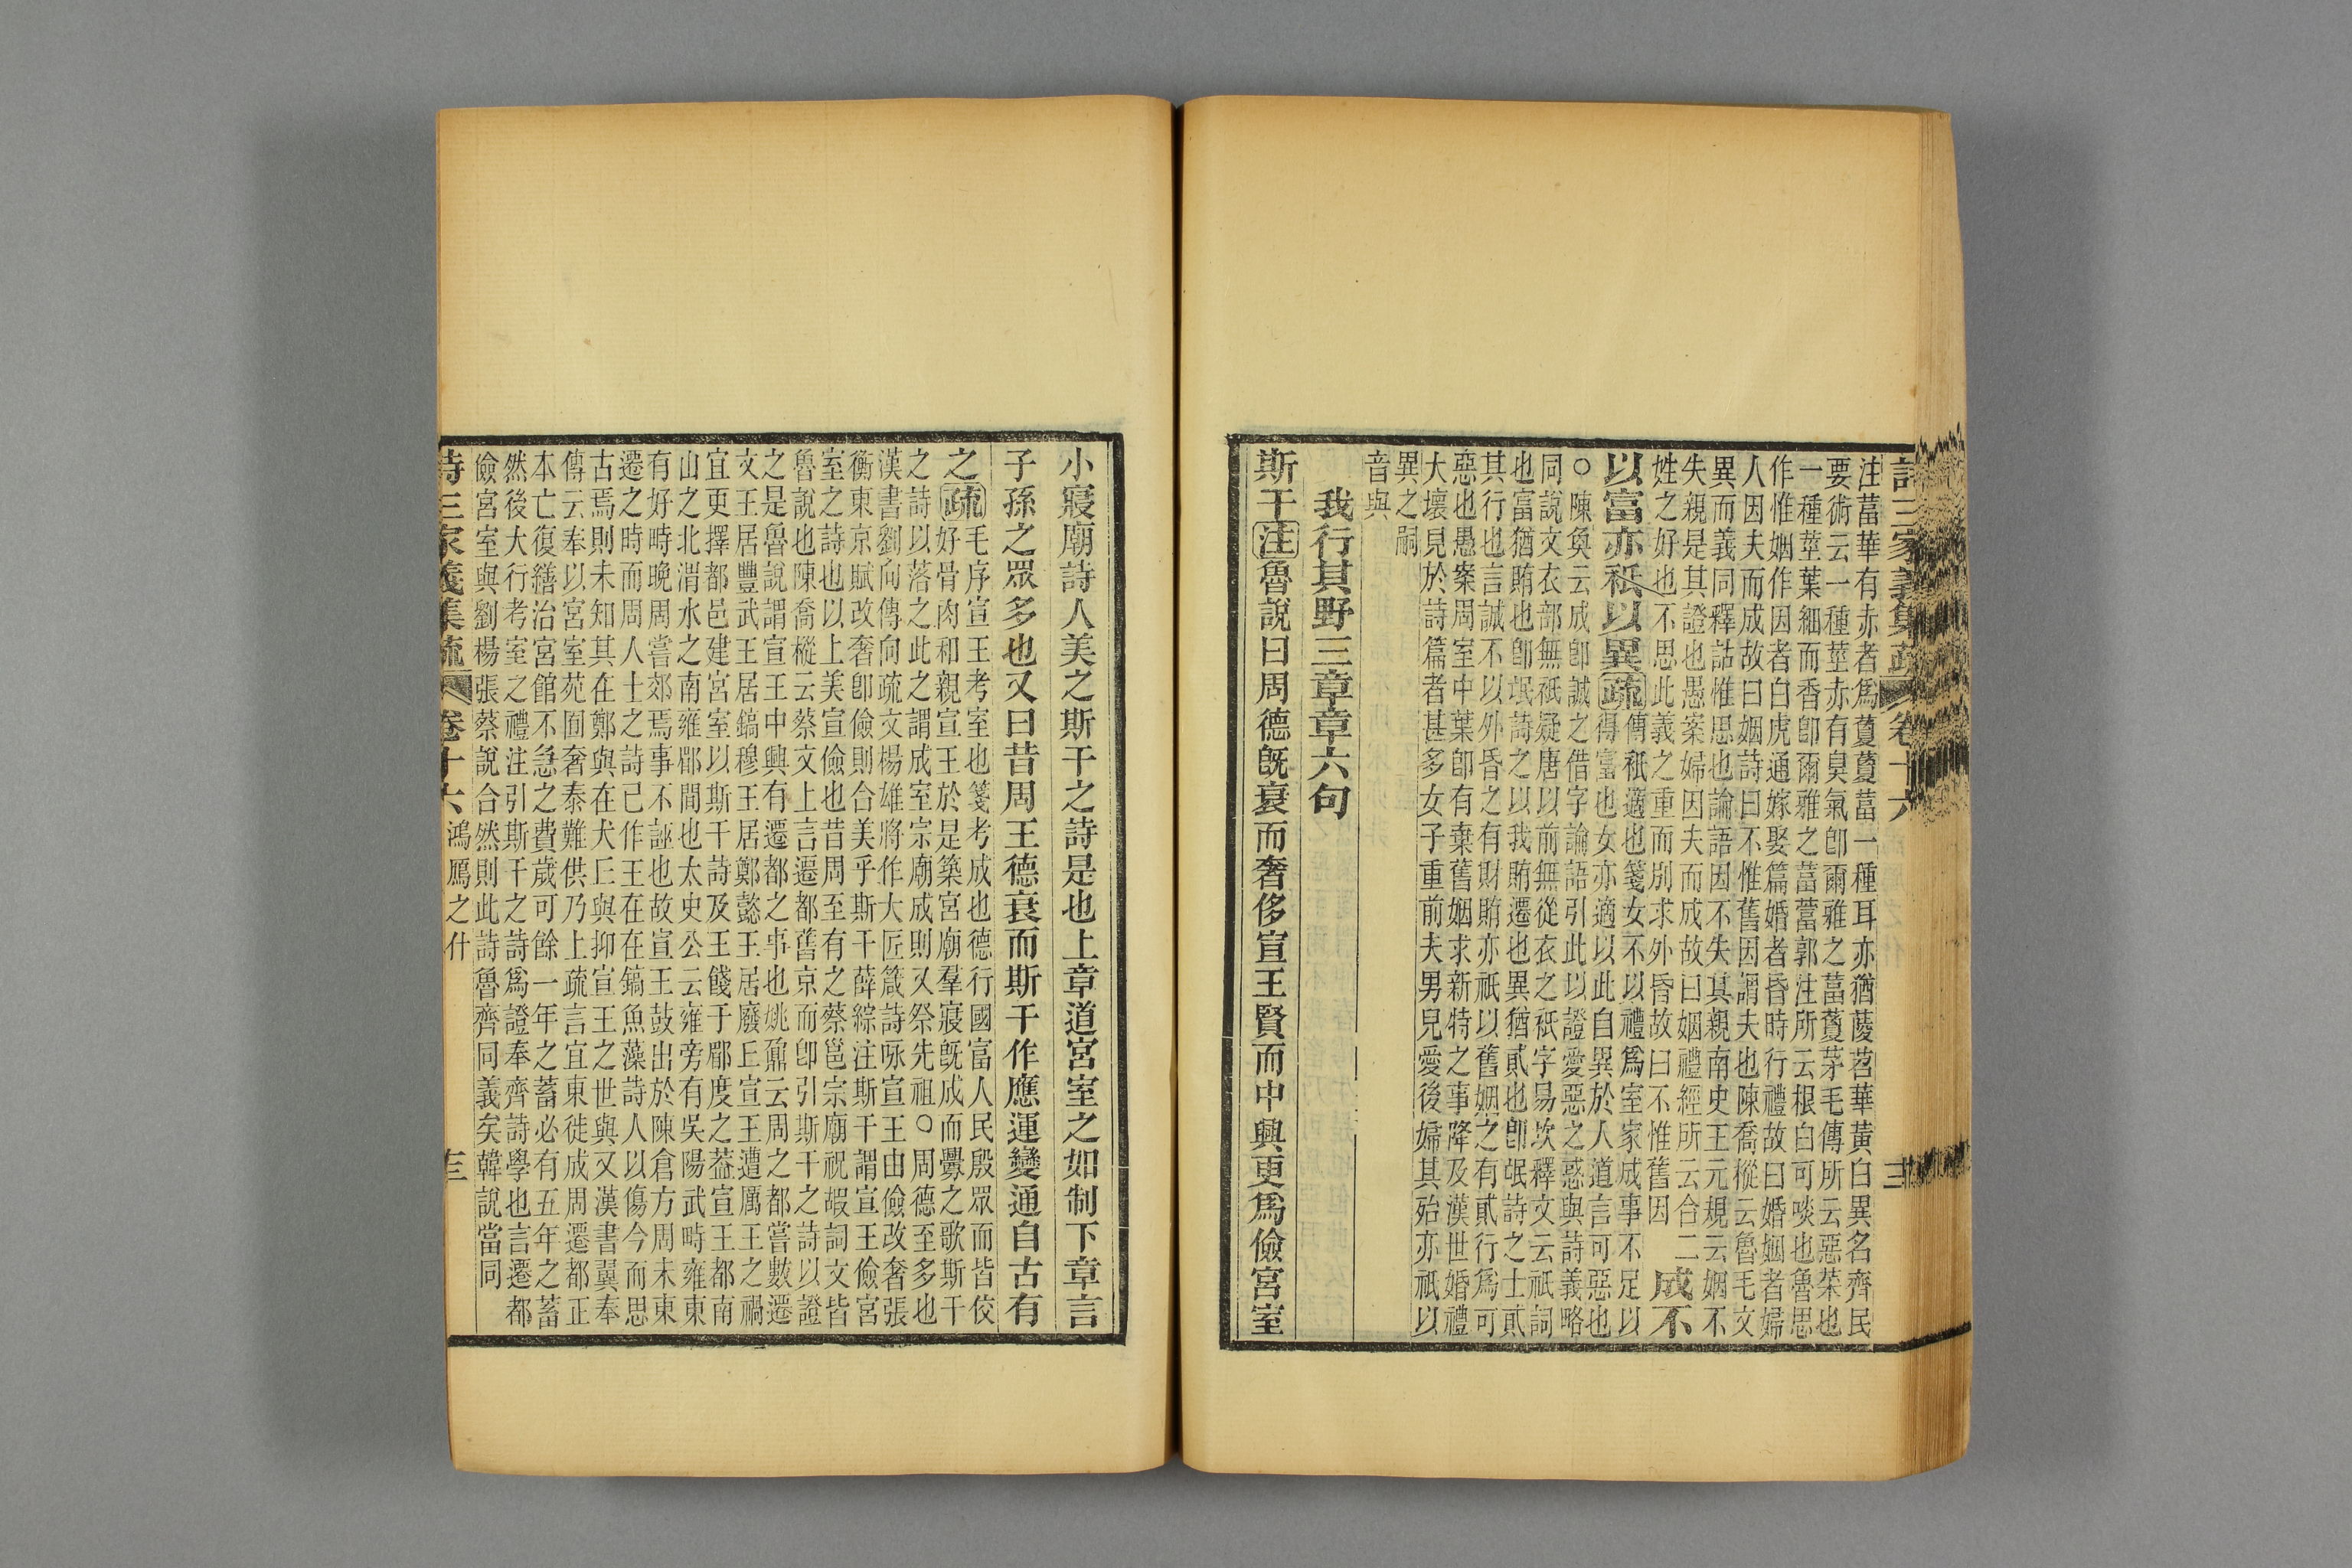 詩三家義集疏 卷十六 三
注葍華有赤者爲藑藑葍一種耳亦猶蔆苕華黃白異名齊民
要術云一種莖赤有臭氣卽爾雅之葍藑茅毛傳所云惡菜也
一種莖葉細而香卽爾雅之葍䔰郭注所云根白可啖也魯思
作惟姻作因者白虎通嫁娶篇婚者昏時行禮故曰婚姻者婦
人因夫而成故曰姻詩曰不惟舊因謂夫也陳喬樅云魯毛文
異而義同釋詁惟思也論語因不失其親南史王元規云姻不
失親是其證也愚案婦因夫而成故曰姻禮經所云合二
姓之好也不思此義之重而別求外昏故曰不惟舊因
成不
以富亦祇以異疏
傳祇適也箋女不以禮爲室家成事不足以
得富也女亦適以此自異於人道言可惡也
○陳奐云成卽誠之借字論語引此以證愛惡之惑與詩義略
同說文衣部無祇疑唐以前無從衣之祇字易坎釋文云祇詞
也富猶賄也卽氓詩之以我賄遷也異猶貳也卽氓詩之士貳
其行也言誠不以外昏之有財賄亦祇以舊姻之有貳行爲可
惡也愚案周室中葉卽有棄舊姻求新特之事降及漢世婚禮
大壞見於詩篇者甚多女子重前夫男兒愛後婦其殆亦祇以
異之嗣
音與
我行其野三章章六句
斯干注魯說曰周德旣衰而奢侈宣王賢而中興更爲儉宮室
小寢廟詩人美之斯干之詩是也上章道宮室之如制下章言
子孫之眾多也又曰昔周王德衰而斯干作應運變通自古有
之疏
毛序宣王考室也箋考成也德行國富人民殷眾而皆佼
好骨肉和親宣王於是築宮廟羣寢旣成而釁之歌斯干
之詩以落之此之謂成室宗廟成則又祭先祖○周德至多也
漢書劉向傳向疏文楊雄將作大匠箴詩咏宣王由儉改奢張
衡東京賦改奢卽儉則合美乎斯干薛綜注斯干謂宣王儉宮
室之詩也以上美宣儉也昔周至有之蔡邕宗廟祝嘏詞文皆
魯說也陳喬樅云蔡文上言遷都舊京而卽引斯干之詩以證
之是魯說謂宣王中興有遷都之事也姚鼐云周之都嘗數遷
文王居豐武王居鎬穆王居鄭懿王居廢丘宣王遭厲王之禍
宜更擇都邑建宮室以斯干詩及王餞于郿度之葢宣王都南
山之北渭水之南雍郿間也太史公云雍旁有吳陽武畤雍東
有好畤晚周嘗郊焉事不誣也故宣王鼓出於陳倉方周未東
遷之時而周人士之詩已作王在在鎬魚藻詩人以傷今而思
古焉則未知其在鄭與在犬丘與抑宣王之世與又漢書翼奉
傳云奉以宮室苑囿奢泰難供乃上疏言宜東徙成周遷都正
本亡復繕治宮館不急之費歲可餘一年之蓄必有五年之蓄
然後大行考室之禮注引斯干之詩爲證奉齊詩學也言遷都
儉宮室與劉楊張蔡說合然則此詩魯齊同義矣韓說當同
詩三家義集疏 卷十六 鴻鴈之什